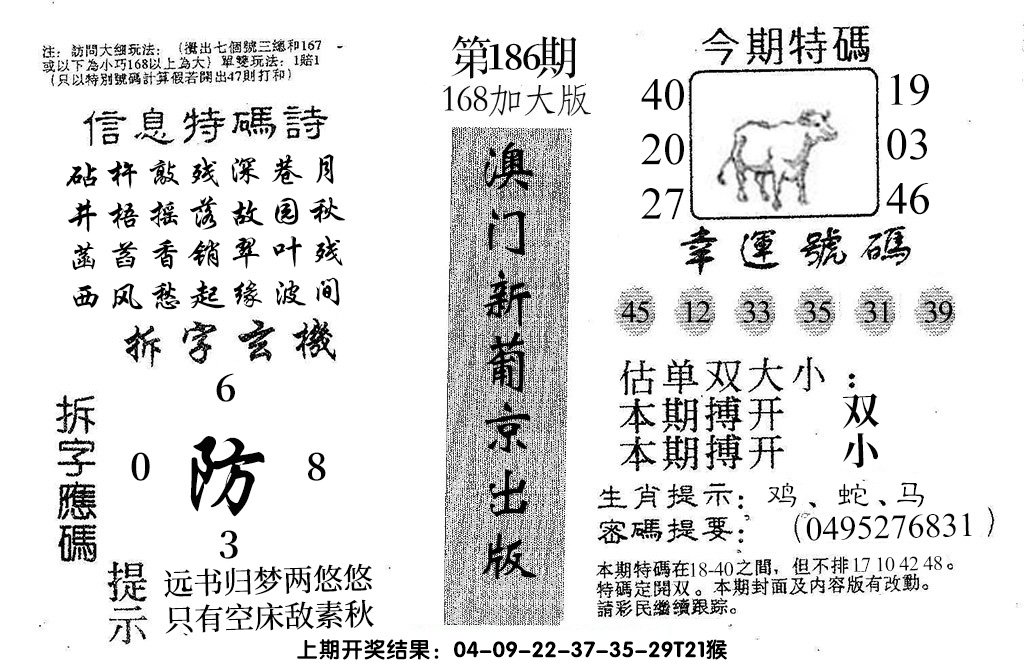 注：訪問大細玩法：（攪出七個號三總和167
或以下為小巧168以上為大）單雙玩法：1賠1
（只以特別號碼計算假若開出47則打和）
信息特碼詩
砧杵敲残深巷月
井梧摇落故园秋
菡萏香销翠叶残
西风愁起缘波间
拆字玄機
拆字應碼
6
0 防 8
3
提示
远书归梦两悠悠
只有空床敌素秋
第186期
168加大版
澳门新葡京出版
今期特碼
40 19
20 03
27 46
幸運號碼
45 12 33 35 31 39
估单双大小：
本期搏开 双
本期搏开 小
生肖提示：鸡、蛇、马
密碼提要：（0495276831）
本期特碼在18-40之間，但不排17 10 42 48。
特碼定開双。本期封面及内容版有改動。
請彩民繼續跟踪。
上期开奖结果：04-09-22-37-35-29T21猴